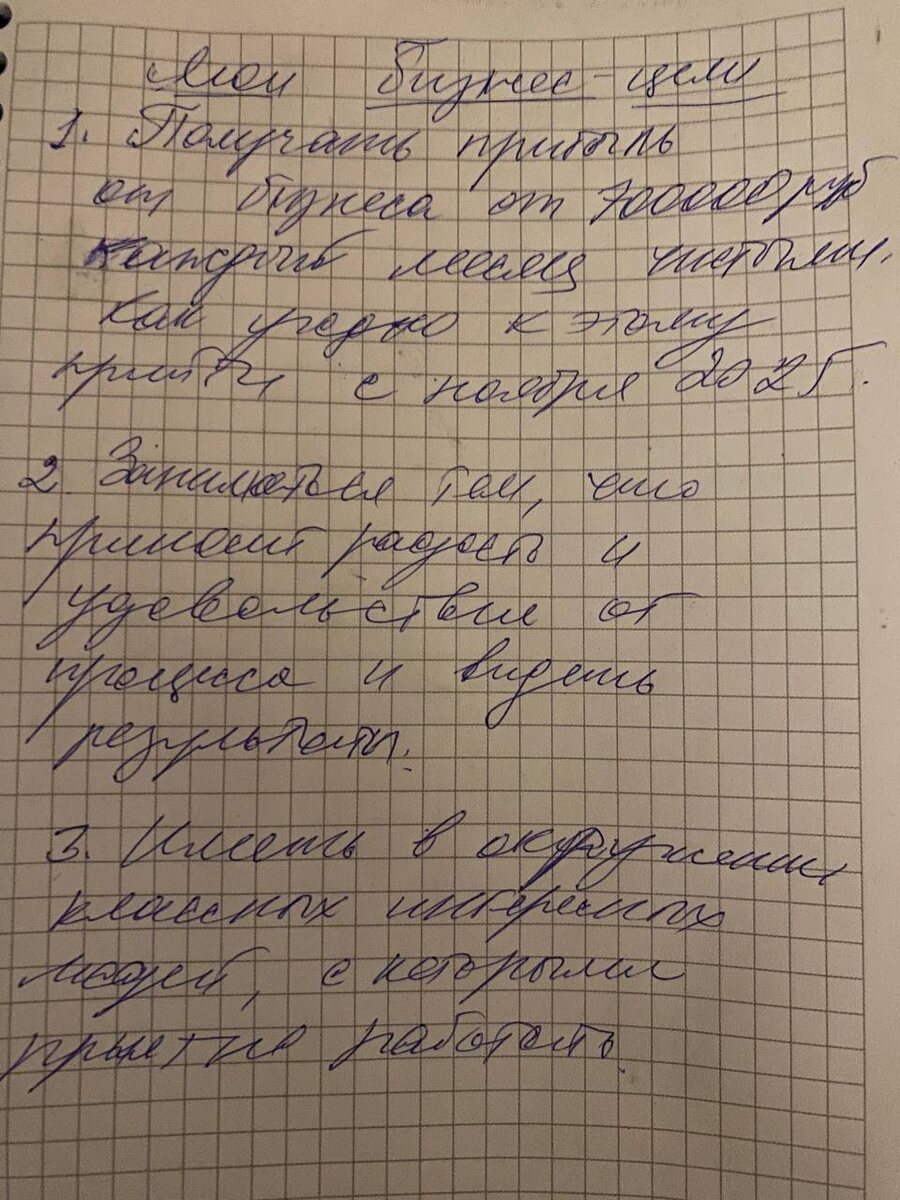 Мои бизнес-цели
1. Получать прибыль
от бизнеса от 700000 руб
каждый месяц чистыми.
Как угодно к этому
прийти с ноября 2025г.
2. Заниматься тем, что
приносит радость и
удовольствие от
процесса и видеть
результаты.
3. Иметь в окружении
классных интересных
людей, с которыми
приятно работать.